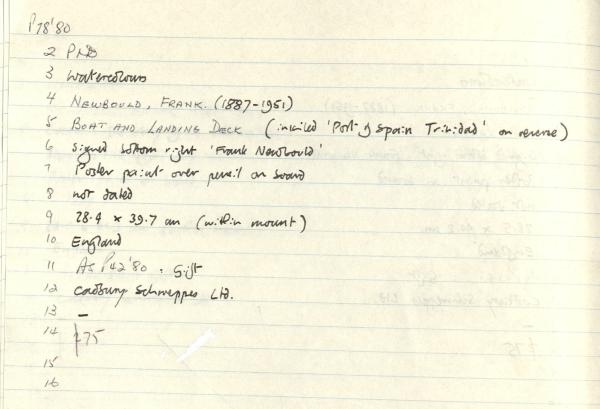 P78'80
2 PND
3 Watercolours
4 NEWBOULD, FRANK. (1887-1951)
5 BOAT AND LANDING DECK (initialed 'Port of Spain Trinidad' on reverse)
6 Signed bottom right 'Frank Newbould'
7 Poster paint over pencil on board
8 not dated
9 28.4 x 39.7 cm (within mount)
10 England
11 As P42'80. Gift
12 Cadbury Schweppes Ltd.
13 –
14 £75
15
16